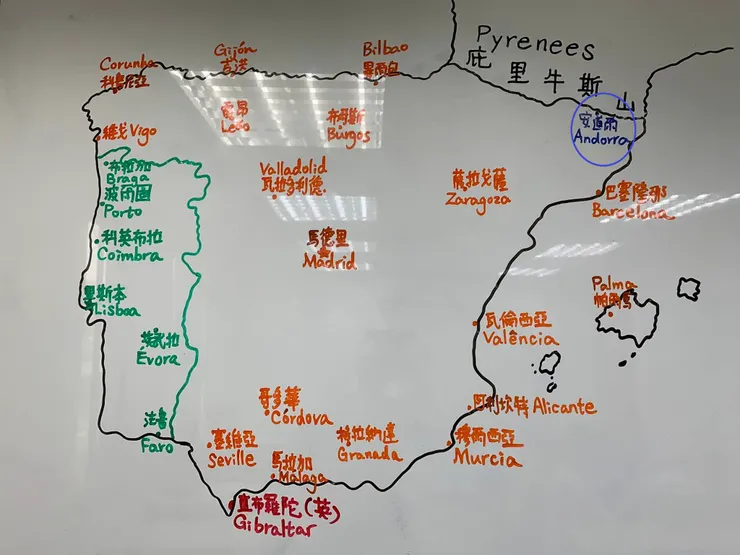 Pyrenees
庇里牛斯山
Corunha
Gijón
Bilbao
畢爾包
維戈 Vigo
León
布哥斯
Burgos
安道爾
Andorra
布拉加
Braga
波爾圖
Porto
Valladolid
瓦拉多利德
薩拉戈薩
Zaragoza
巴塞隆那
Barcelona
科英布拉
Coimbra
馬德里
Madrid
里斯本
Lisboa
Palma
瓦倫西亞
Valência
Évora
哥多華
Córdova
阿利坎特 Alicante
法魯
Faro
塞維亞
Seville
馬拉加
Málaga
格拉納達
Granada
穆爾西亞
Murcia
直布羅陀(英)
Gibraltar